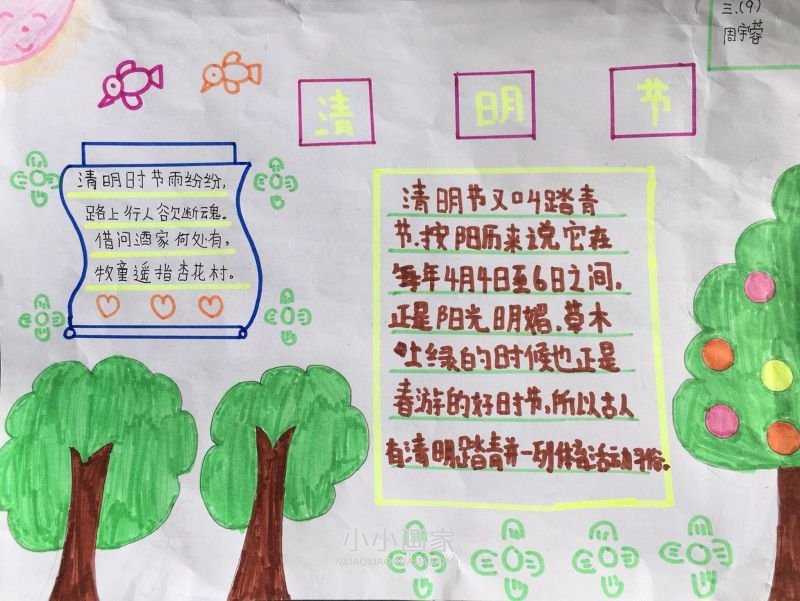 三.(9)
周宇蓉
清 明 节
清明时节雨纷纷,
路上行人欲断魂。
借问酒家何处有,
牧童遥指杏花村。
清明节又叫踏青
节.按阳历来说它在
每年4月4日至6日之间,
正是阳光明媚.草木
吐绿的时候也正是
春游的好时节,所以古人
有清明踏青并一列体育活动习俗。
小小画家